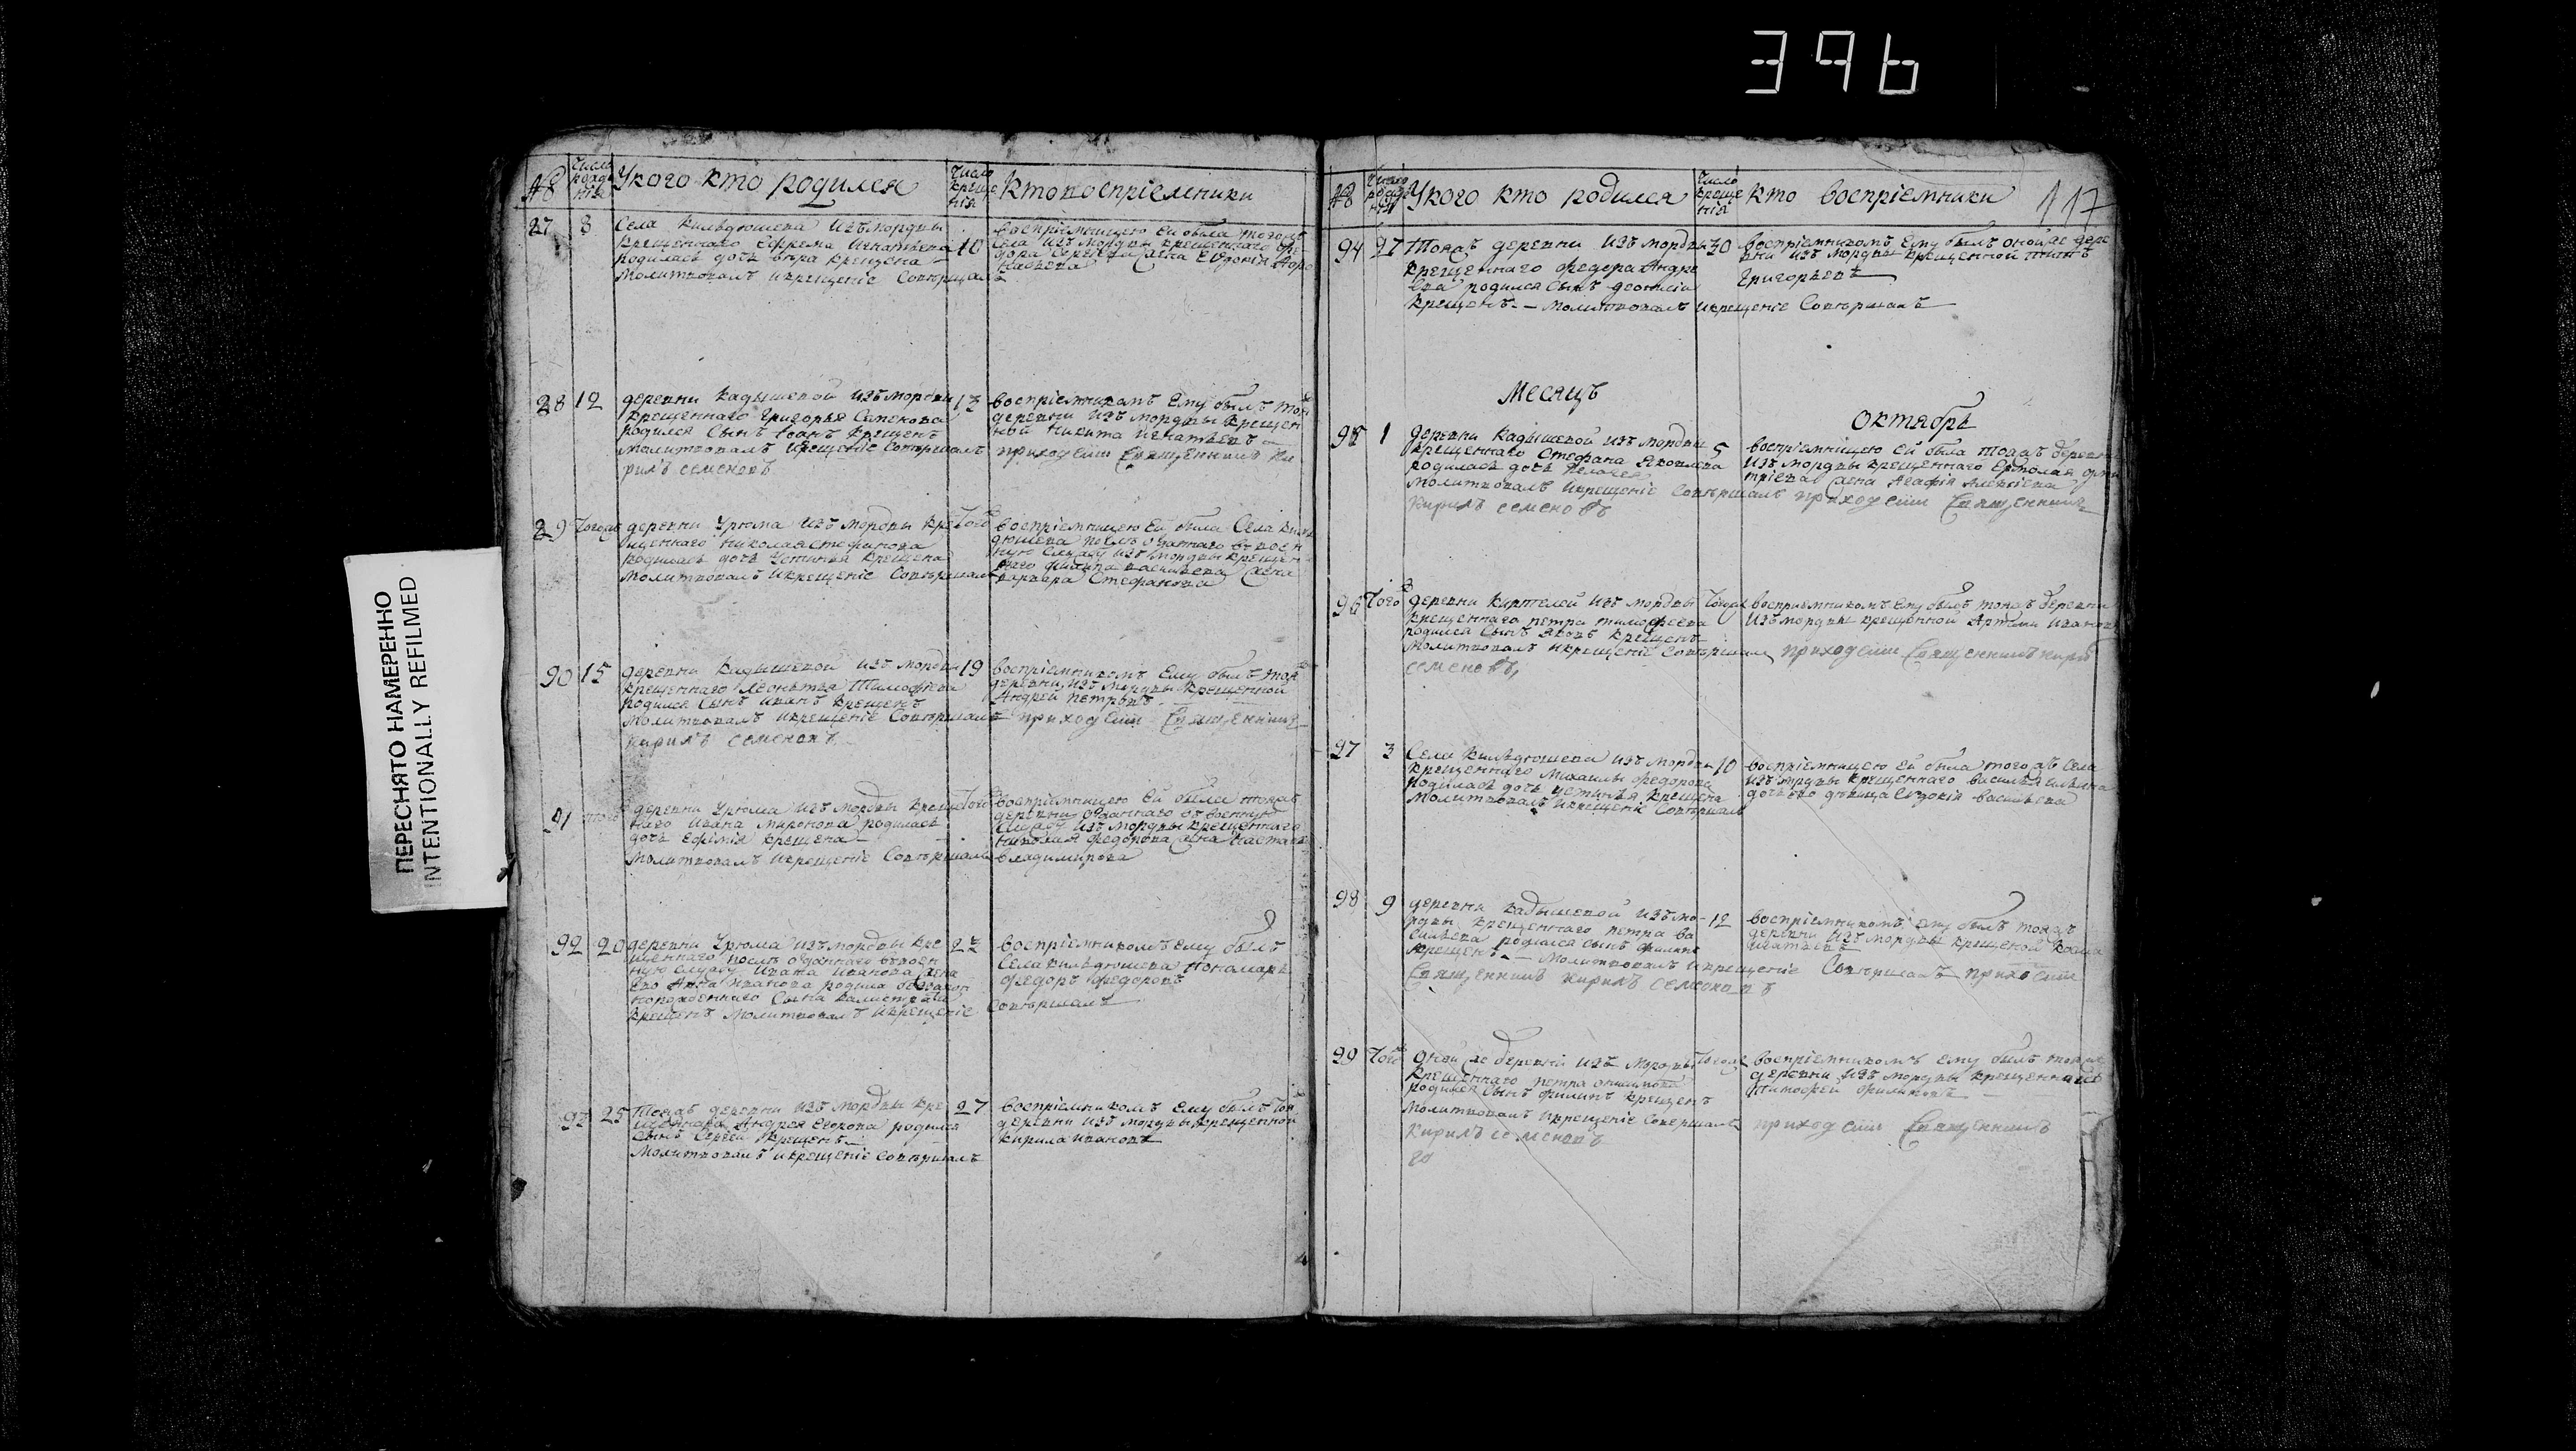 396
ПЕРЕСНЯТО НАМЕРЕННО
INTENTIONALLY REFILMED
№
Число рожде нія
У кого кто родился
Число креще нія
Кто воспріемники
87
8
Села Кильдюшева изъ мордвы
крещеннаго Ефрема Игнатьева
родилась дочь вѣра крещена
Молитвовалъ икрещеніе Совѣршалъ
10
воспріемницею Ей была тогожъ
Села изъ мордвы крещеннаго Фе
дора Сергеева жена Евдокія
88
12
деревни Кадышевой изъ мордвы
крещеннаго Григорья Саменова
родился Сынъ Іоанъ крещенъ
Молитвовалъ икрещеніе Совѣршалъ приходскій Священникъ Ки
рилъ семеновъ
13
воспріемникомъ Ему былъ той
деревни изъ мордвы крещен
ной Никита Игнатьевъ
89
Тогожъ
деревни Урюма изъ мордвы кре
щеннаго Николая Стефанова
родилась дочь Устинья крещена
Молитвовалъ икрещеніе Совѣршалъ
Того
воспріемницею Ей была Села Киль
дюшева послѣ отданнаго въ воен
ную Службу изъ мордвы крещен
наго Филипа васильева жена
варвара Стефанова
90
15
деревни Кадышевой изъ мордвы
крещеннаго Леонтья Тимофѣева
родился Сынъ Иванъ крещенъ
Молитвовалъ икрещеніе Совѣршалъ приходскій Священникъ
Кирилъ семеновъ
19
воспріемникомъ Ему былъ той
деревни изъ мордвы крещенной
Андрей петровъ
91
деревни Урюма изъ мордвы креще
наго Ивана Миронова родилась
дочь Ефимія крещена
Молитвовалъ икрещеніе Совѣршалъ
Того
воспріемницею Ей была тояжъ
деревни отданнаго въ военную
Службу изъ мордвы крещеннаго
Николая Федорова жена
владимирова
92
20
деревни Урюма изъ мордвы кре
щеннаго послѣ отданнаго въ воен
ную службу Иванова жена
Его Анна Иванова родила незакон
норожденнаго Сына Калистрата
крещенъ Молитвовалъ икрещеніе Совѣршалъ
22
воспріемникомъ ему былъ
Села Кильдюшева Пономарь
Федоръ Федоровъ
93
25
Тояжъ деревни изъ мордвы кре
щеннаго Андрея Егорова родился
Сынъ Сергей крещенъ
Молитвовалъ икрещеніе Совѣршалъ
27
воспріемникомъ Ему былъ той
деревни изъ мордвы крещенной
Кирила Ивановъ
№
Число рожде нія
У кого кто родился
Число креще нія
Кто воспріемники
117
94
27
Тояжъ деревни изъ мордвы
крещеннаго Федера Андре
ева родился Сынъ Деонисій
крещенъ Молитвовалъ икрещеніе Совѣршалъ
30
воспріемникомъ Ему былъ онойже дере
вни изъ мордвы крещенной
Григорьевъ
Месяцъ
Октябрь
95
1
деревни Кадышевой изъ мордвы
крещеннаго Стефана Яковлева
родилась дочь Пелагея
Молитвовалъ икрещеніе Совѣршалъ приходскій Священникъ
Кирилъ семеновъ
5
воспріемницею Ей была тояжъ деревни
изъ мордвы крещеннаго Ермолая дми
тріева жена Агафія Алексіева
96
Того
деревни Киртелей изъ мордвы
крещеннаго петра тимофеева
родился Сынъ Яковъ крещенъ
Молитвовалъ икрещеніе Совѣршалъ приходскій Священникъ Кирилъ
семеновъ
Тогоже
воспріемникомъ Ему былъ тояжъ деревни
изъ мордвы крещенной Артеми Ивановъ
97
3
Села Кильдюшева изъ мордвы
крещеннаго Михаилы Федорова
родилась дочь устинья крещена
Молитвовалъ икрещеніе Совѣршалъ
10
воспріемницею Ей была тогожъ Села
изъ мордвы крещеннаго василья ильина
дочь его дѣвица Евдокія васильева
98
9
деревни Кадышевой изъ мо
рдвы крещеннаго петра ва
сильева родился сынъ Филипъ
крещенъ Молитвовалъ икрещеніе Совѣршалъ приходскій
Священникъ Кирилъ семеновъ
12
воспріемникомъ ему былъ тояжъ
деревни изъ мордвы крещеной Козма
Игнатьевъ
99
Того
Оной же деревни изъ мордвы
крещеннаго петра
родился Сынъ Филипъ крещенъ
Молитвовалъ икрещеніе Совершалъ приходскій Священникъ
Кирилъ семеновъ
Тогоже
воспріемникомъ ему былъ тояже
деревни изъ мордвы крещенной
тимофей Филиповъ